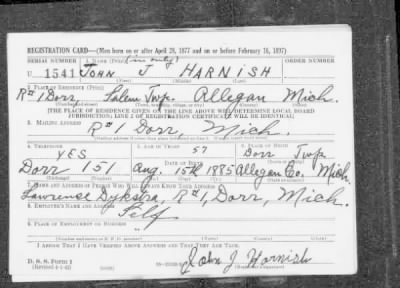 REGISTRATION CARD—(Men born on or after April 28, 1877 and on or before February 16, 1897)
SERIAL NUMBER 1. NAME (Print) (in only) ORDER NUMBER
U 1541 JOHN J HARNISH
(First) (Middle) (Last)
2. PLACE OF RESIDENCE (Print)
R#1 Dorr, Salem Twp. Allegan Mich.
(Number and street) (Town, township, village, or city) (County) (State)
[THE PLACE OF RESIDENCE GIVEN ON THE LINE ABOVE WILL DETERMINE LOCAL BOARD
JURISDICTION; LINE 2 OF REGISTRATION CERTIFICATE WILL BE IDENTICAL]
3. MAILING ADDRESS
R#1 Dorr, Mich.
4. TELEPHONE 5. AGE IN YEARS 6. PLACE OF BIRTH
YES 57 Dorr Twp.
DATE OF BIRTH
Dorr - 151 Aug. 15th 1885 Allegan Co. Mich
7. NAME AND ADDRESS OF PERSON WHO WILL ALWAYS KNOW YOUR ADDRESS
Lawrence Dykstra, R#1, Dorr, Mich.
8. EMPLOYER'S NAME AND ADDRESS
Self
9. PLACE OF EMPLOYMENT OR BUSINESS
I AFFIRM THAT I HAVE VERIFIED ABOVE ANSWERS AND THAT THEY ARE TRUE.
D. S. S. Form 1
(Revised 4-1-42)
John J Harnish